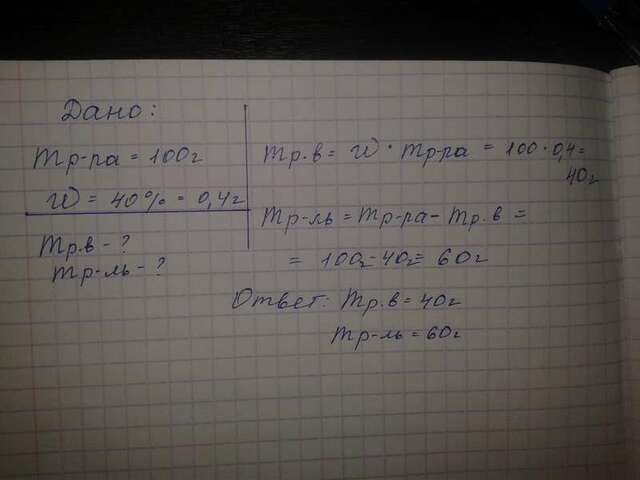 Дано:
mр-ра = 100г
W = 40% = 0,4г
mр.в - ?
mр-ль - ?
mр.в = W · mр-ра = 100 · 0,4 =
40г
mр-ль = mр-ра - mр.в =
= 100г - 40г = 60г
Ответ: mр.в = 40г
mр-ль = 60г